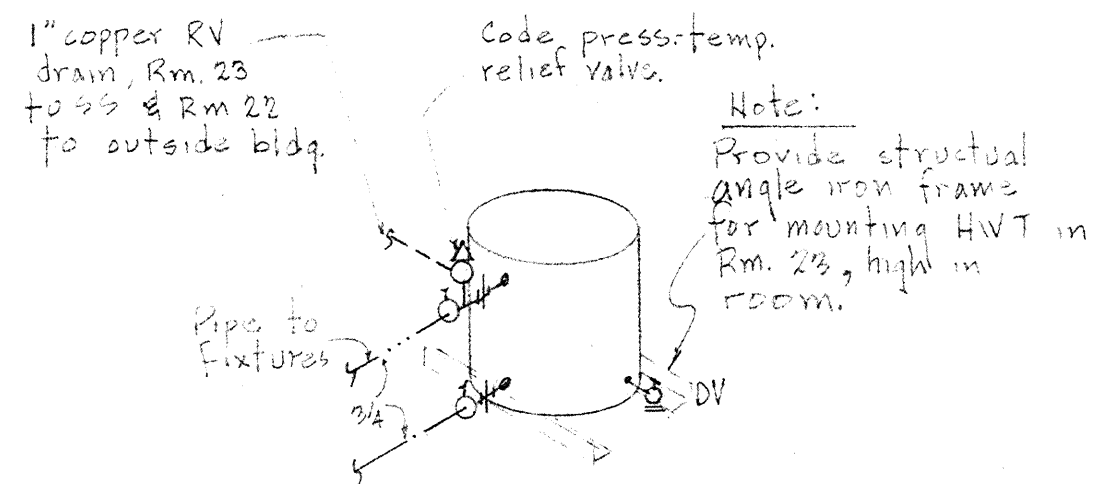 1" copper RV
drain, Rm. 23
to SS & Rm 22
to outside bldg.
Code press.-temp.
relief valve.
Note:
Provide structual
angle iron frame
for mounting HWT in
Rm. 23, high in
room.
Pipe to
Fixtures
3/4
DV